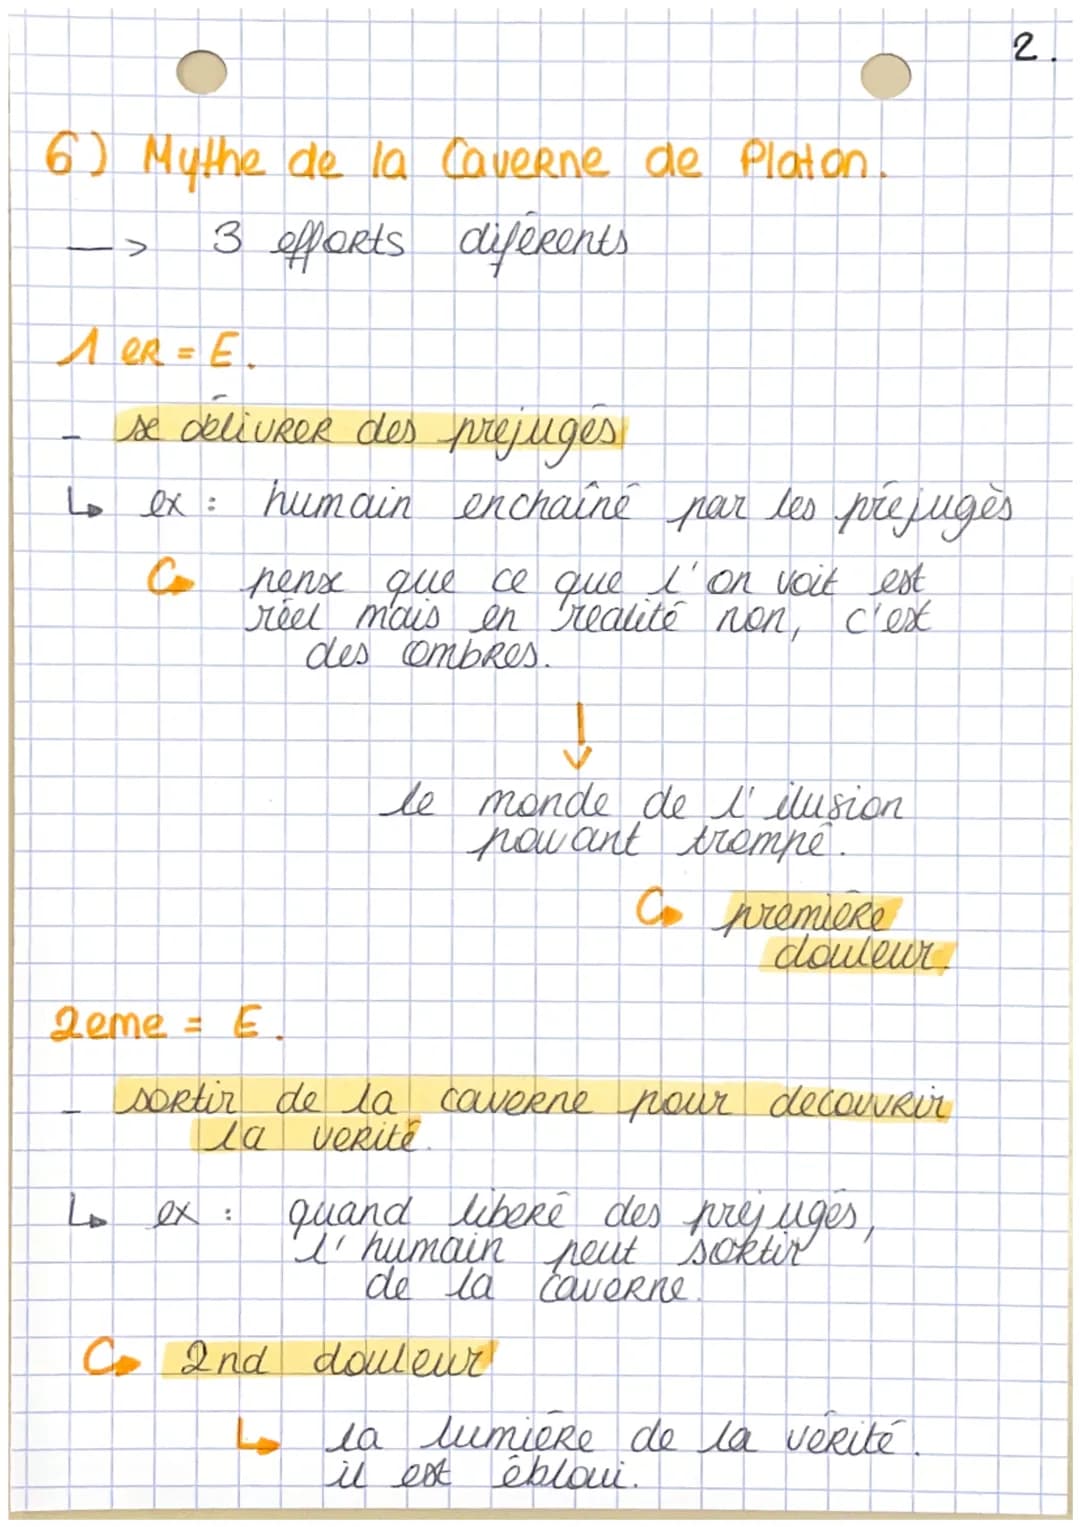 2.
6) Mythe de la Caverne de Platon.
--> 3 efforts diférents
1er = E.
- se délivrer des préjugés
↳ ex : humain enchaîné par les préjugès
↪ pense que ce que l'on voit est
réel mais en realité non, c'est
des ombres.
↓
le monde de l'ilusion
pouvant trompé.
↪ première
douleur.
2eme = E.
- sortir de la caverne pour decouvrir
la verité.
↳ ex : quand liberé des préjugés,
l'humain peut sortir
de la caverne.
↪ 2nd douleur
↳ la lumière de la vérité.
il est ébloui.